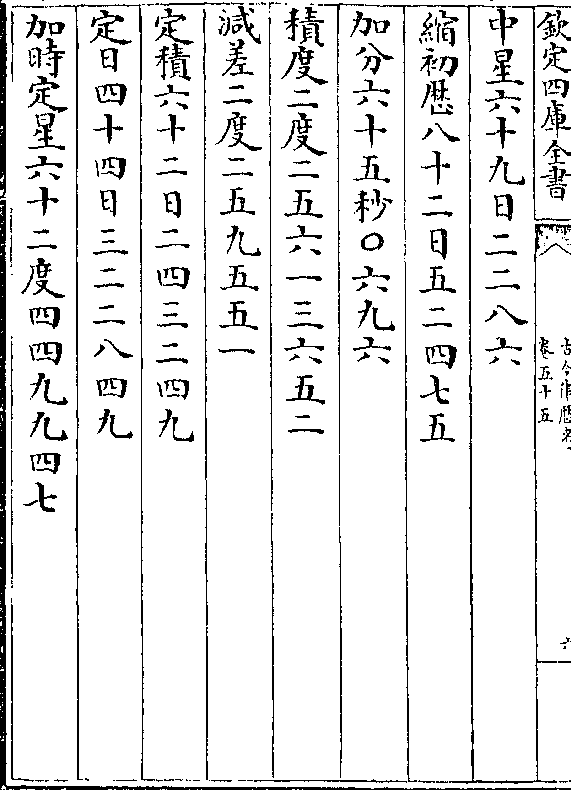 欽定四庫全書
卷五十五
六
中星六十九日二二八六
縮初厯八十二日五二四七五
加分六十五秒〇六九六
積度二度二五六一三六五二
減差二度二五九五五一
定積六十二日二四三二四九
定日四十四日三二二八四九
加時定星六十二度四四九九四七